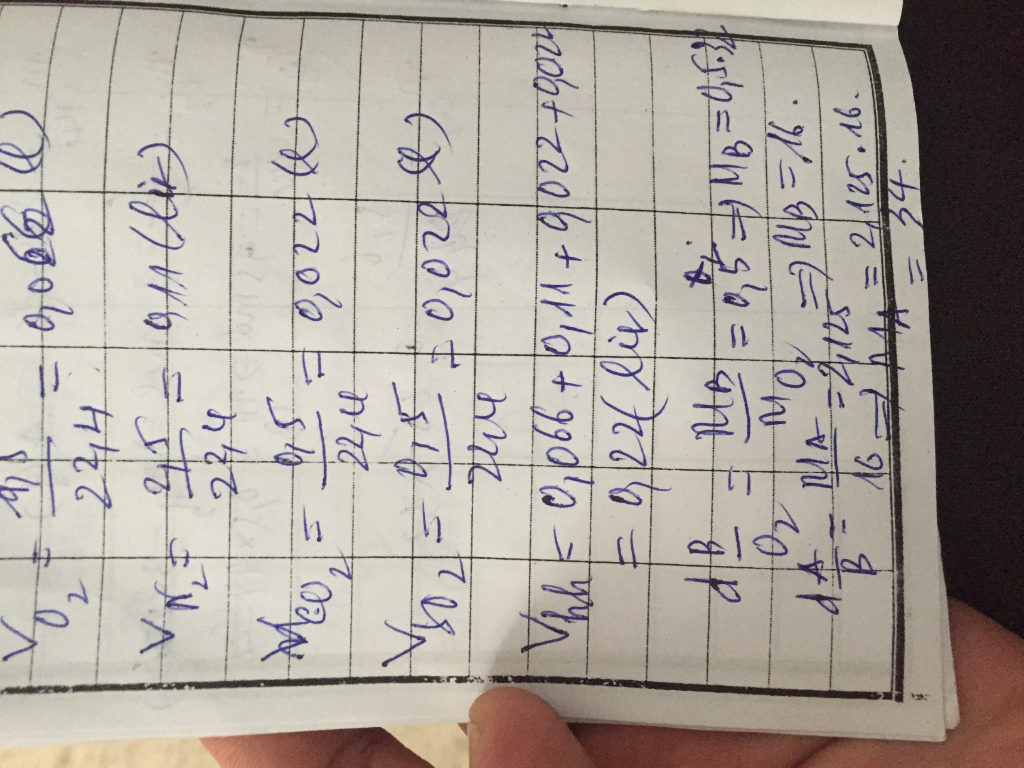 V O₂ = 1,5/22,4 = 0,066 (l)
V N₂ = 2,5/22,4 = 0,11 (lít)
V CO₂ = 0,5/22,4 = 0,022 (l)
V SO₂ = 0,5/22,4 = 0,022 (l)
Vhh = 0,066 + 0,11 + 0,022 + 0,022
= 0,22 (lít)
d B/O₂ = MB/MO₂ = 0,5 => MB = 0,5.32
=> MB = 16.
d A/B = MA/16 = 2,125 => MA = 2,125.16.
= 34.